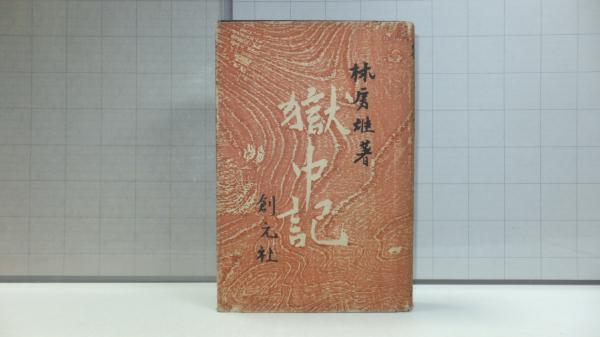 林房雄著
獄中記
創元社